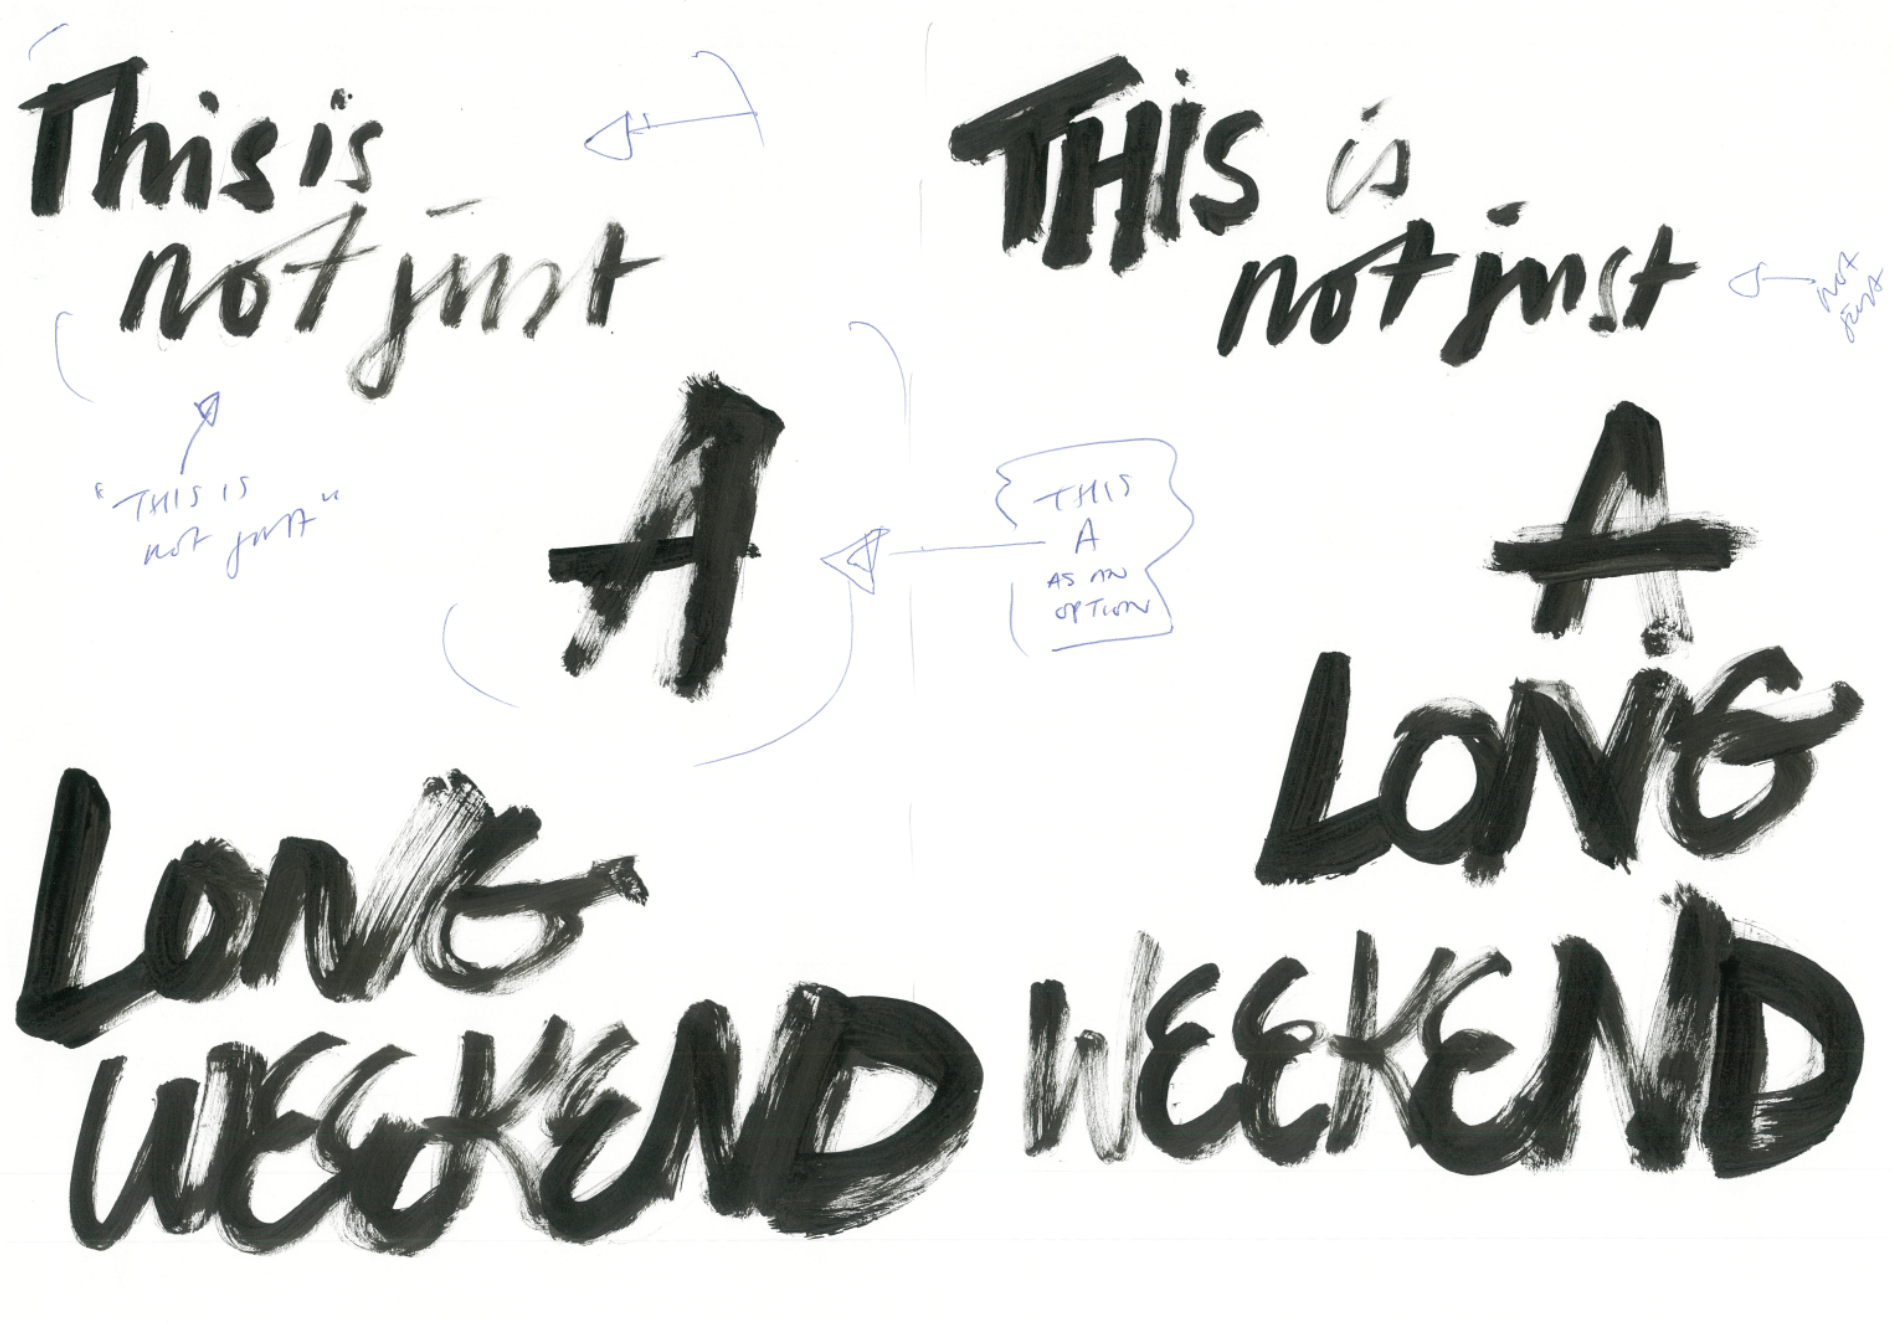 This is
not just
A
"THIS IS
not just"
LONG
WEEKEND
THIS
A
AS AN
OPTION
THIS is
not just
not
just
A
LONG
WEEKEND